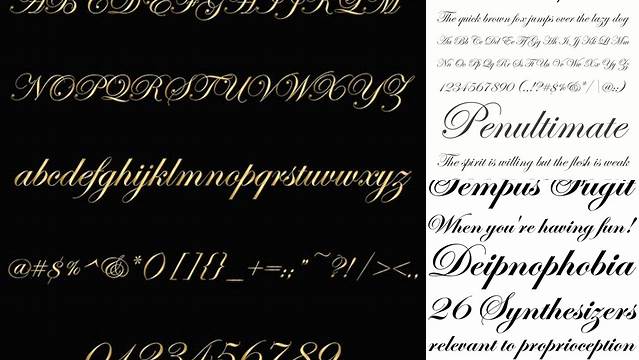 ABCDEFGHIJKLM
NOPQRSTUVWXYZ
abcdefghijklmnopqrstuvwxyz
@#$%^&*()[]{}_+=:;"~?!/><.,
0123456789
The quick brown fox jumps over the lazy dog
Aa Bb Cc Dd Ee Ff Gg Hh Ii Jj Kk Ll Mm
Nn Oo Pp Qq Rr Ss Tt Uu Vv Ww Xx Yy Zz
1234567890 (.,!?#$%&*/\|@:;)
Penultimate
The spirit is willing but the flesh is weak
Tempus Fugit
When you're having fun!
Deipnophobia
26 Synthesizers
relevant to proprioception